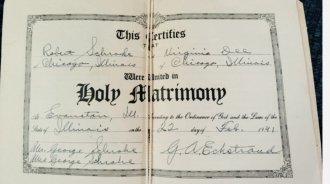 This Certifies
THAT
Robert Schrade Virginia Dee
of Chicago, Illinois of Chicago, Illinois
Were United in
Holy Matrimony
At Evanston, Ill. According to the Ordinance of God and the Laws of the
State of Illinois on the 22 day of Feb. 1941
Mr. George Schrade
Mrs. George Schrade G. A. Eckstrand